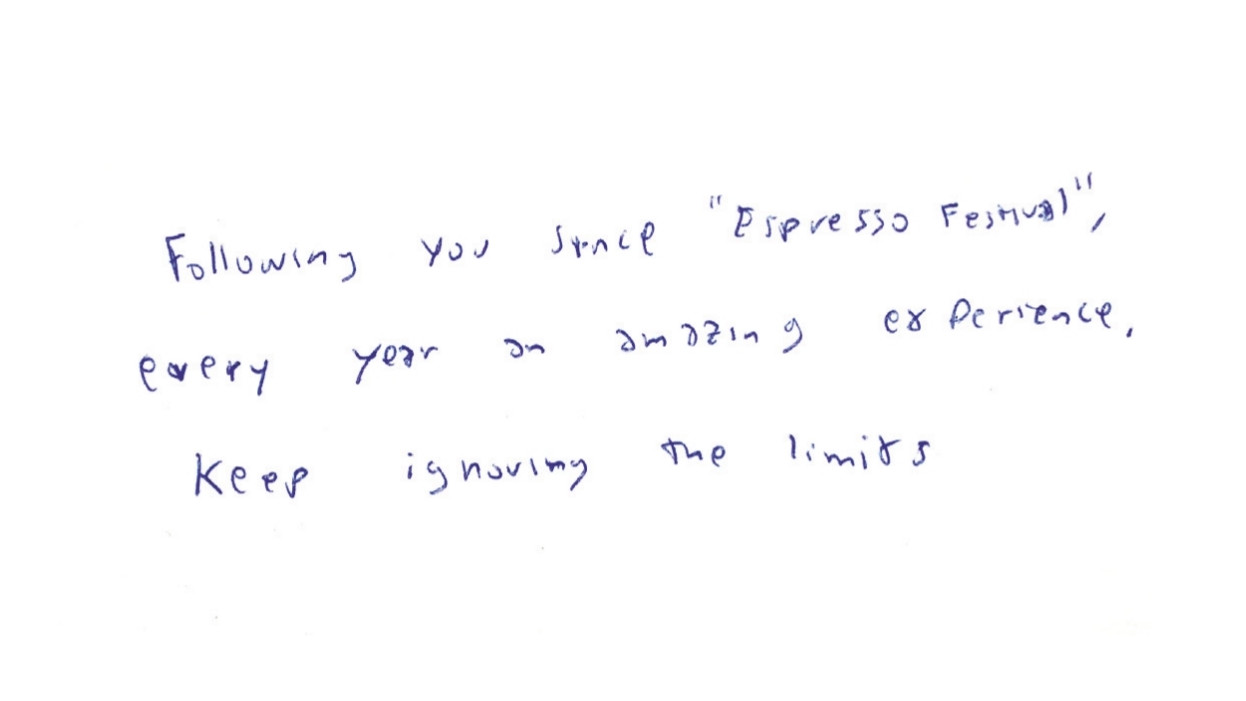 Following you since "Espresso Festival",
every year an amazing experience.
Keep ignoring the limits